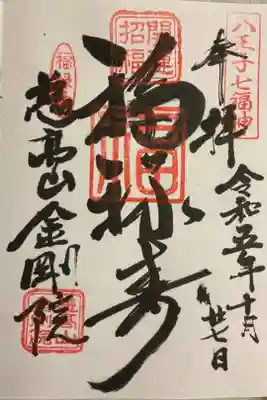 八王子七福神
奉拝
令和五年十月
廿七日
開運
招福
福禄寿
慈高山金剛院